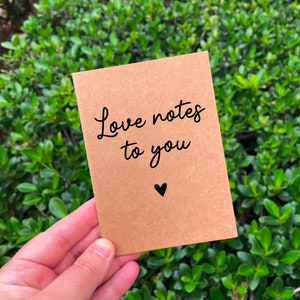 Love notes
to you